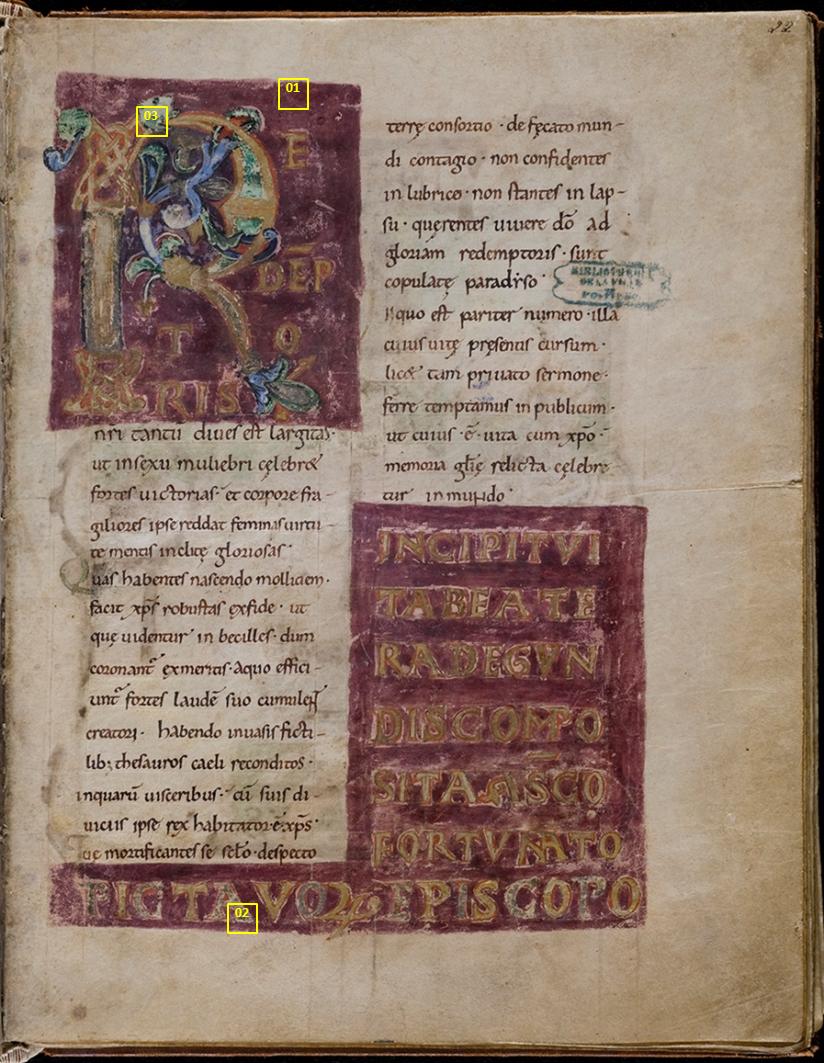 22
01
03
R E
DĒP
T O
RIS
nri tantū diues est largitas·
ut insexu muliebri cęlebr&
fortes uictorias· et corpore fra-
giliores ipse reddat feminas uirtu-
te mentis inclitę gloriosas·
Quas habentes nascendo molliciem·
facit xp̄s robustas exfide· ut
quę uidentur in becilles· dum
coronant̄ exmeritis· aquo effici-
unt̄ fortes laudē suo cumulet
creatori· habendo inuasis ficti-
lib; thesauros caeli reconditos·
inquarū uisceribus· cū suis di-
uiciis ipse rex habitator·ē· xp̄s·
quę mortificantes se sc̄lo· despecto
terrę consortio· defęcato mun-
di contagio· non confidentes
in lubrico· non stantes in lap-
su· querentes uiuere dō ad
gloriam redemptoris· sunt
copulatę paradyso·
BIBLIOTHEQUE
DE LA VILLE
POITIERS
Inquo est pariter numero· illa
cuius uitę pręsentis cursum·
lic& tam priuato sermone·
ferre temptamus in publicum·
ut cuius ·ē· uita cum xp̄o·
memoria glīę relicta cęlebre-
tur in mundo·
INCIPIT VI
TA BEATE
RADEGVN
DIS COMPO
SITA A SC̄O
FORTVNATO
PICTAVOR̄ EPISCOPO
02